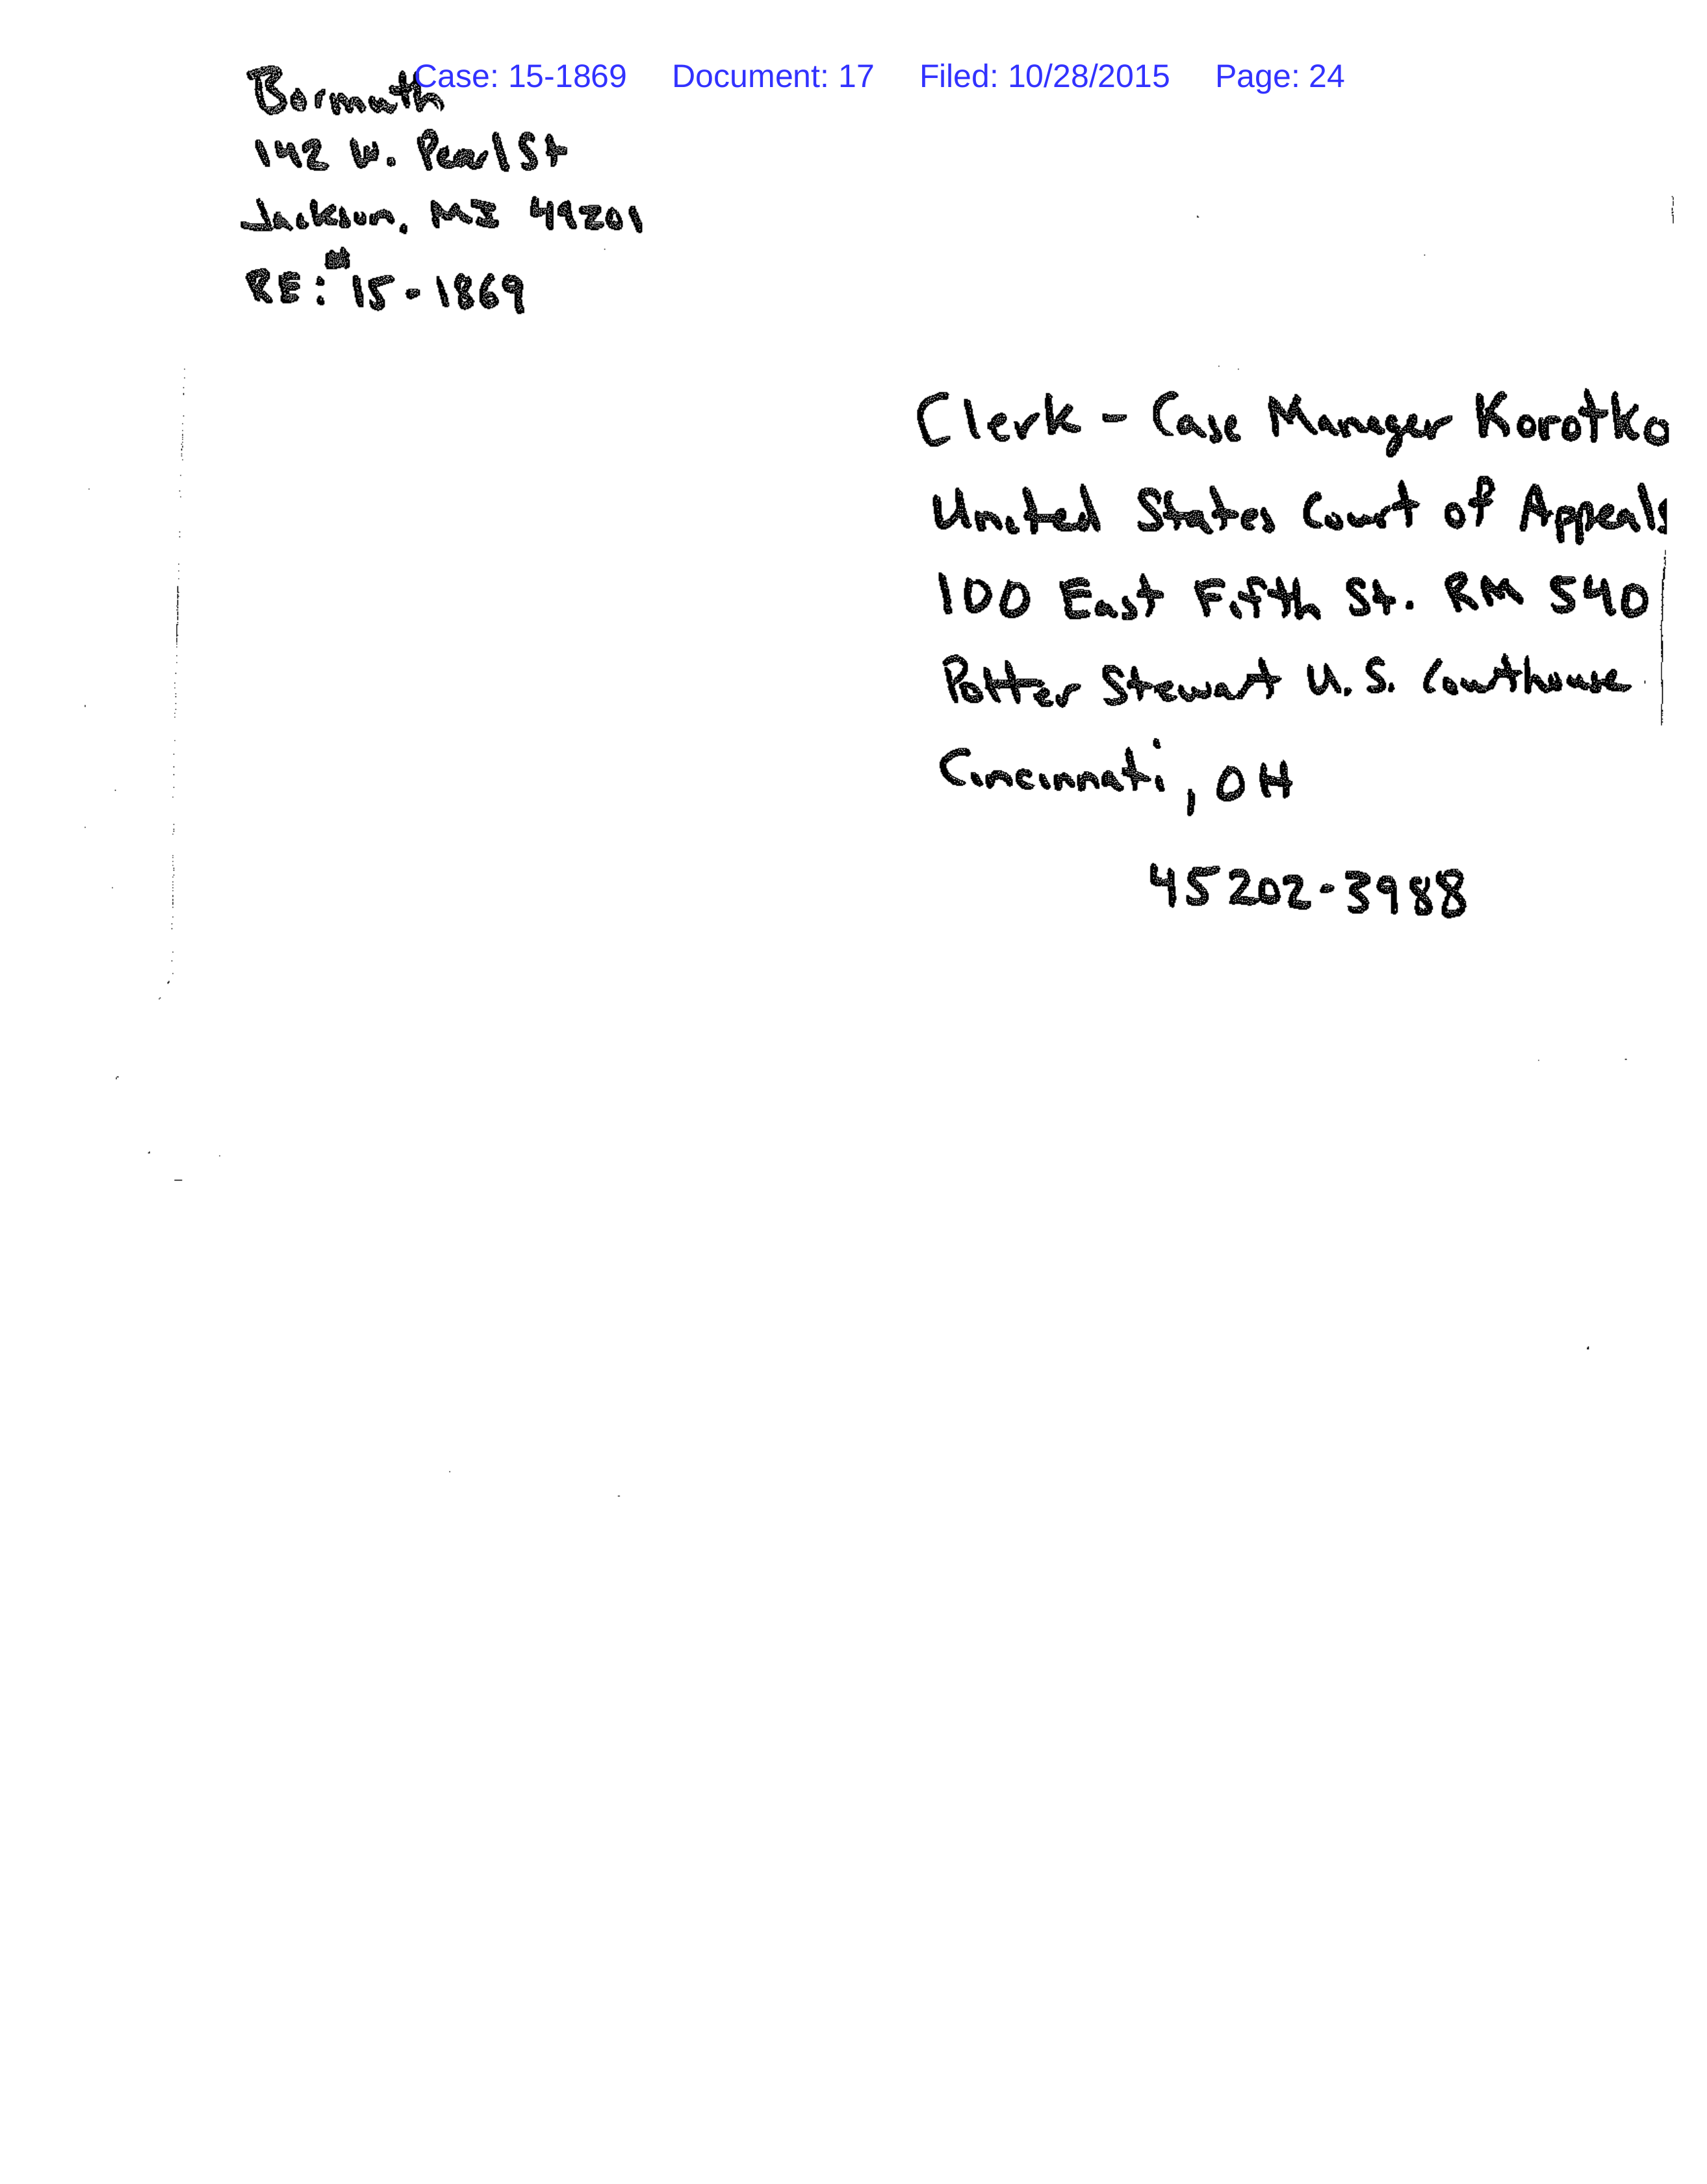 Case: 15-1869 Document: 17 Filed: 10/28/2015 Page: 24
Bormuth
142 W. Pearl St
Jackson, MI 49201
RE: #15-1869
Clerk - Case Manager Korotko
United States Court of Appeals
100 East Fifth St. RM 540
Potter Stewart U.S. Courthouse
Cincinnati, OH
45202-3988